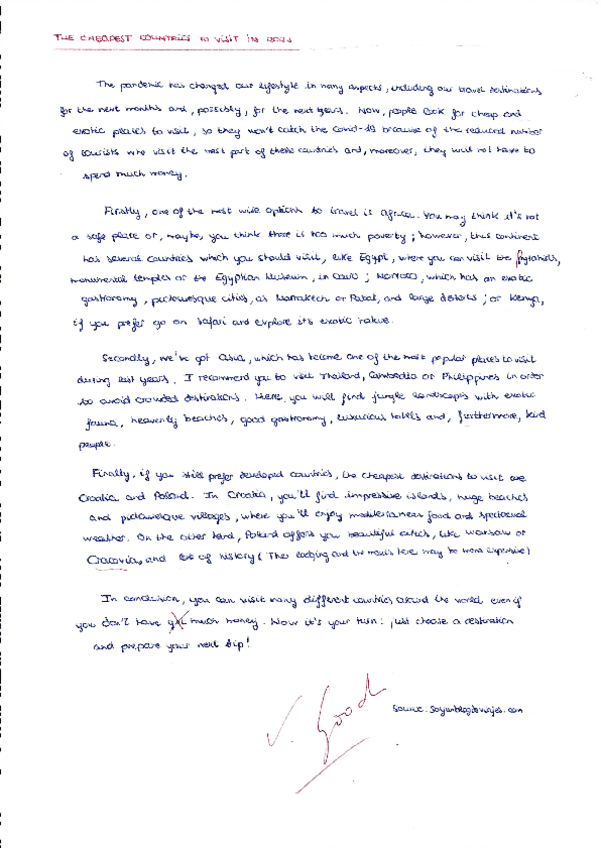 THE CHEAPEST COUNTRIES TO VISIT IN
The pandemic has changed our lifestyle in many aspects, including our travel destinations
for the next months and, possibly, for the next years. Now, people look for cheap and
exotic places to visit, so they won't catch the Covid-19 because of the reduced number
of tourists who visit the most part of these countries and, moreover, they will not have to
spend much money.
Firstly, one of the most wise options to travel is Africa. You may think it's not
a safe place or, maybe, you think there is too much poverty; however, this continent
has several countries which you should visit, like Egypt, where you can visit the pyramids,
monumental temples or the Egyptian Museum, in Cairo; Morocco, which has an exotic
gastronomy, picturesque cities, as Marrakech or Rabat, and large deserts; or Kenya,
if you prefer go on safari and explore its exotic nature.
Secondly, we've got Asia, which has become one of the most popular places to visit
during last years. I recommend you to visit Thailand, Cambodia or Philippines in order
to avoid crowded destinations. Here, you will find jungle landscapes with exotic
fauna, heavenly beaches, good gastronomy, luxurious hotels and, furthermore, kind
people.
Finally, if you still prefer developed countries, the cheapest destinations to visit are
Croatia and Poland. In Croatia, you'll find impressive islands, huge beaches
and picturesque villages, where you'll enjoy mediterranean food and
weather. On the other hand, Poland offers you beautiful cities, like Warsaw or
Cracovia, and lots of history (The lodging and the meals here may be more expensive)
In conclusion, you can visit many different countries around the world even if
you don't have much money. Now it's your turn: just choose a destination
and prepare your next trip!
V. Good
Source: soyunblogdeviajes.com